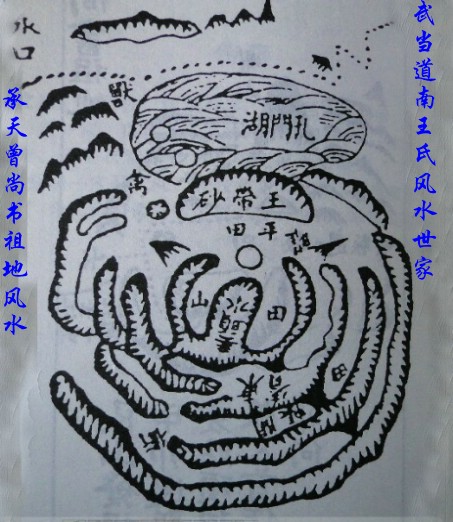 武当道南王氏风水世家
水口
承天曾尚书祖地风水
孔門湖
禽
王帶砂
平田
山
田
田